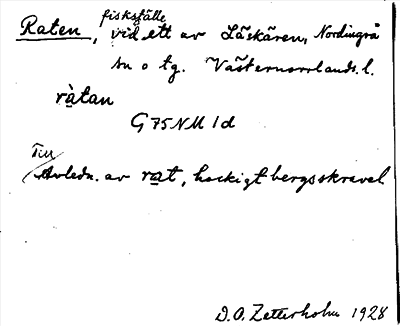 Raten, fiskställe vid ett av Läskären, Nordingrå
sn o tg. Västernorrlands. l.
ràtan
G75NM 1d
Till
Avledn. av rat, hackigt bergsskravel
D. O. Zetterholm 1928